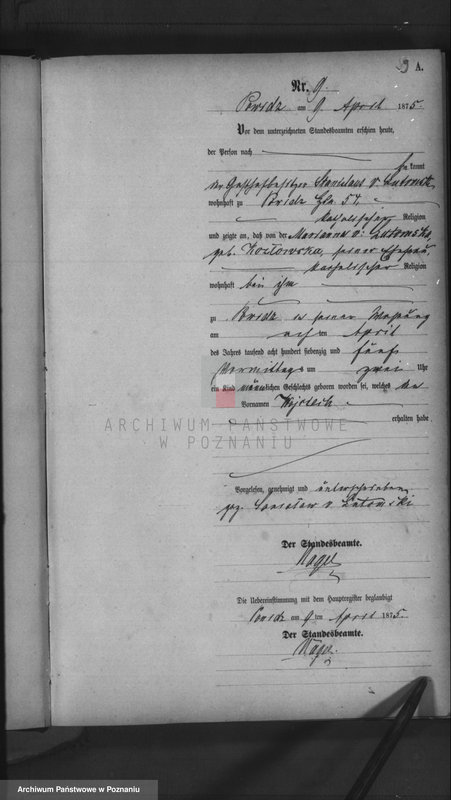 9 A.
Nr. 9.
Powidz am 9. April 1875.
Vor dem unterzeichneten Standesbeamten erschien heute,
der Person nach
bekannt
der Stanislaus v. Lutomski
wohnhaft zu Powidz 57,
katholischer Religion
und zeigte an, daß von der Marianna v. Lutomska,
geb. Kozłowska, seiner Ehefrau,
katholischer Religion
wohnhaft bei ihm
zu Powidz in seiner Wohnung
am ten April
des Jahres tausend acht hundert siebenzig und fünf
Vormittags um zwei Uhr
ein Kind männlichen Geschlechts geboren worden sei, welches den
Vornamen
erhalten habe
ARCHIWUM PAŃSTWOWE
W POZNANIU
Vorgelesen, genehmigt und unterschrieben
gez. v. Lutomski
Der Standesbeamte.
Nagel
Die Uebereinstimmung mit dem Hauptregister beglaubigt
Powidz am 9 ten April 1875.
Der Standesbeamte.
Nagel.
Archiwum Państwowe w Poznaniu